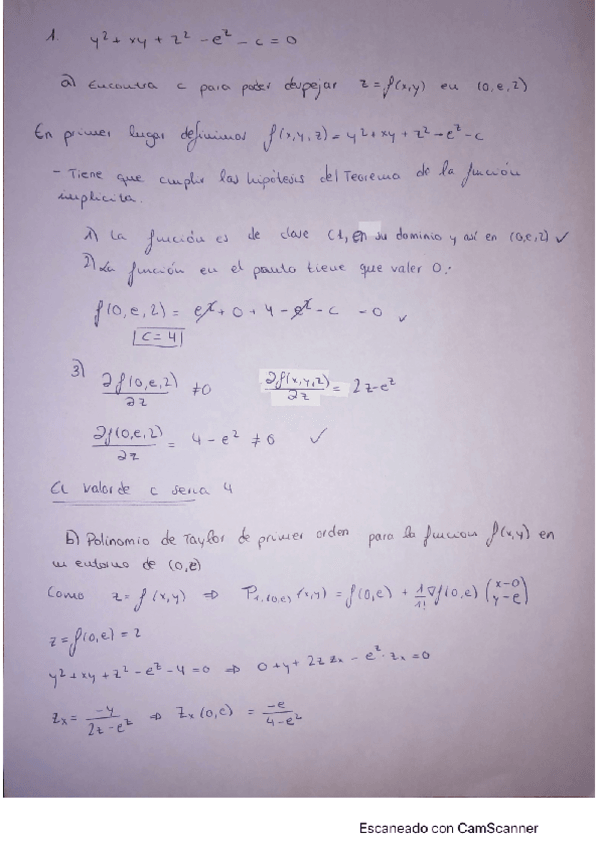 1. y² + xy + z² - e^z - c = 0
a) Encontra c para poder despejar z = f(x,y) en (0,e,2)
En primer lugar definimos f(x,y,z) = y² + xy + z² - e^z - c
- Tiene que cumplir las hipótesis del Teorema de la función
implícita.
1) La función es de clase C1, en su dominio y así en (0,e,2) ✓
2) La función en el punto tiene que valer 0:
f(0,e,2) = e² + 0 + 4 - e² - c = 0 ✓
C = 4
3) ∂f(0,e,2)/∂z ≠ 0 ∂f(x,y,z)/∂z = 2z - e^z
∂f(0,e,2)/∂z = 4 - e² ≠ 0 ✓
El valor de c seria 4
b) Polinomio de Taylor de primer orden para la funcion f(x,y) en
un entorno de (0,e)
Como z = f(x,y) ⇒ P1,(0,e) (x,y) = f(0,e) + 1/1! ∇f(0,e) (x-0 y-e)
z = f(0,e) = 2
y² + xy + z² - e^z - 4 = 0 ⇒ 0 + y + 2z zx - e^z · zx = 0
zx = -y/2z - e^z ⇒ zx (0,e) = -e/4 - e²
Escaneado con CamScanner